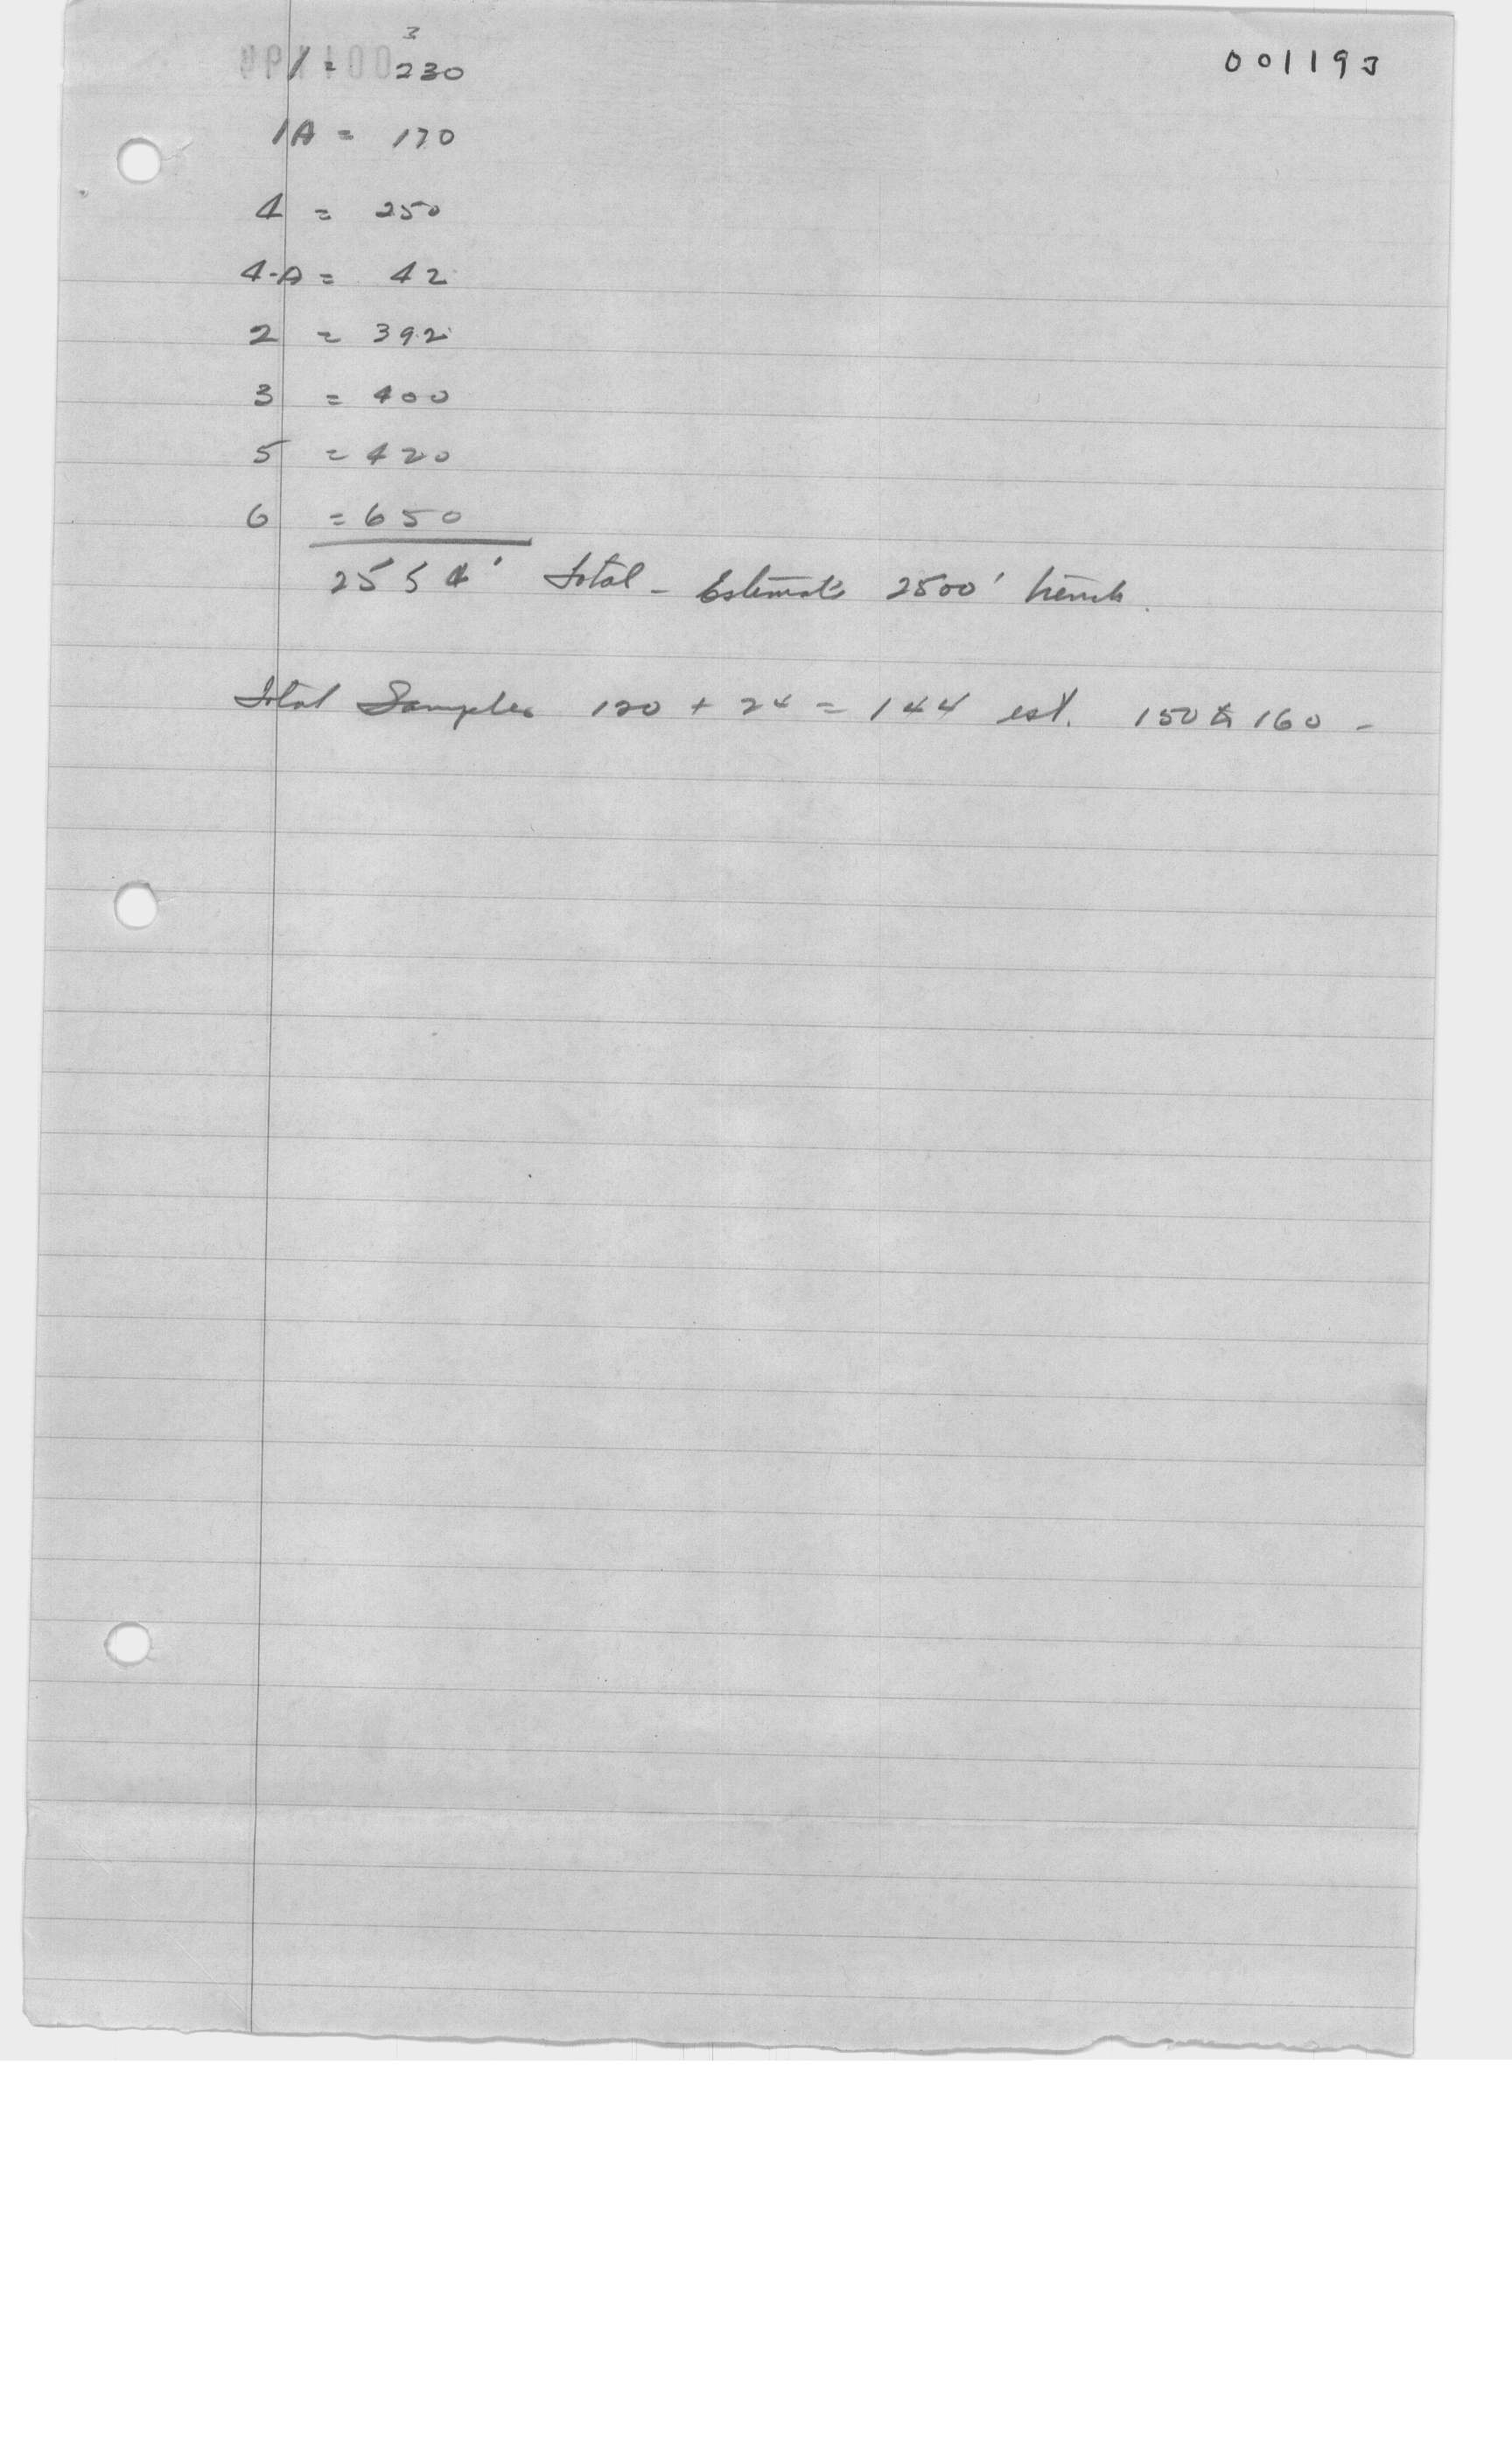 001193
3
1 = 230
1A = 170
4 = 250
4-A = 42
2 = 392
3 = 400
5 = 420
6 = 650
2554' Total - Estimate 2500' trench.
Total Samples 120 + 24 = 144 est. 150 to 160 -